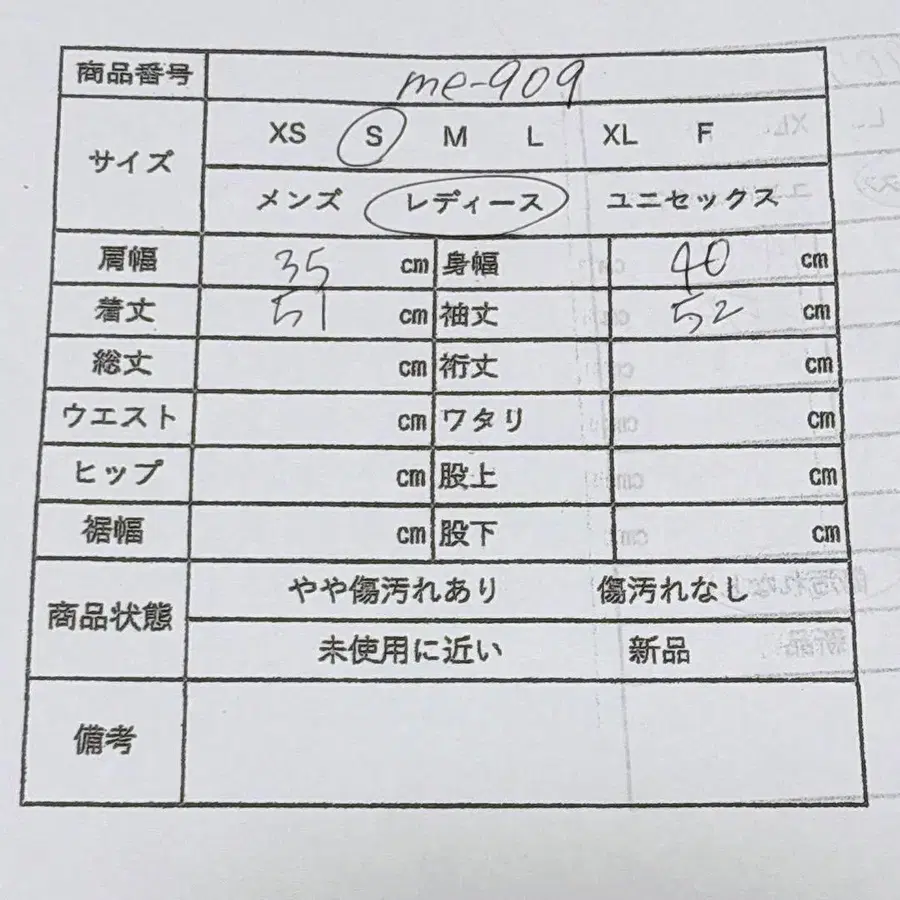 商品番号 me-909
サイズ XS S M L XL F
メンズ レディース ユニセックス
肩幅 35 cm 身幅 40 cm
着丈 51 cm 袖丈 52 cm
総丈 cm 裄丈 cm
ウエスト cm ワタリ cm
ヒップ cm 股上 cm
裾幅 cm 股下 cm
商品状態 やや傷汚れあり 傷汚れなし
未使用に近い 新品
備考